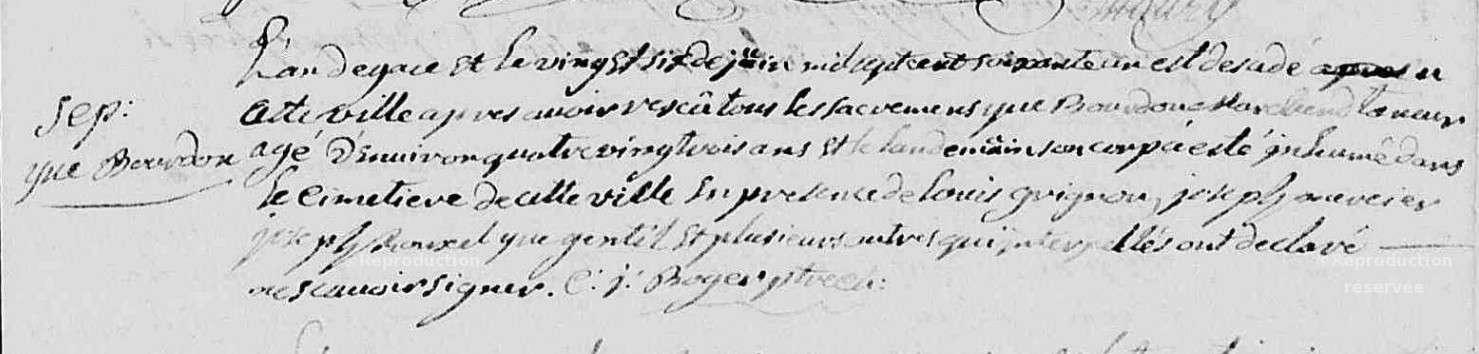 Sep:
yue Bourdon
L'an de grace et le vingt six de juin mil sept cent soixante un est desadé apres en
cette ville apres avoir rescû tous les sacremens yue Bourdon Marchend taneur
agé D'environ quatre vingt trois ans et le landemain son corp a esté inhumé dans
le Cimetiere de cette ville En presence de Louis grignon, joseph mercier
joseph Rouxel yue gentil et plusieurs autres qui interpellés ont declaré
ne scavoir signer. C: j: Roger ptre
Reproduction
Reproduction
reservee